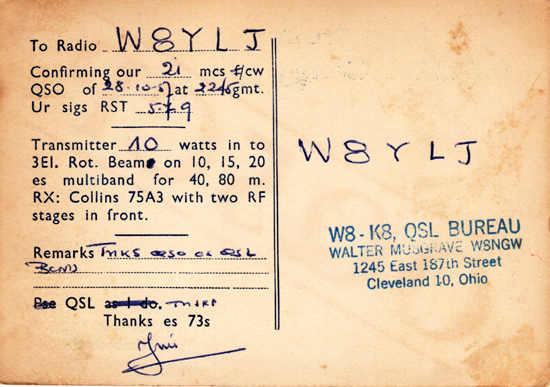 To Radio W8YLJ
Confirming our 21 mcs f/cw
QSO of 28-10-57 at 2245 gmt.
Ur sigs RST 579
Transmitter 10 watts in to
3El. Rot. Beam on 10, 15, 20
es multiband for 40, 80 m.
RX: Collins 75A3 with two RF
stages in front.
Remarks TNKS QSO es QSL
Pse QSL as I do.
Thanks es 73s
W8YLJ
W8 - K8, QSL BUREAU
WALTER MUSGRAVE W8NGW
1245 East 187th Street
Cleveland 10, Ohio